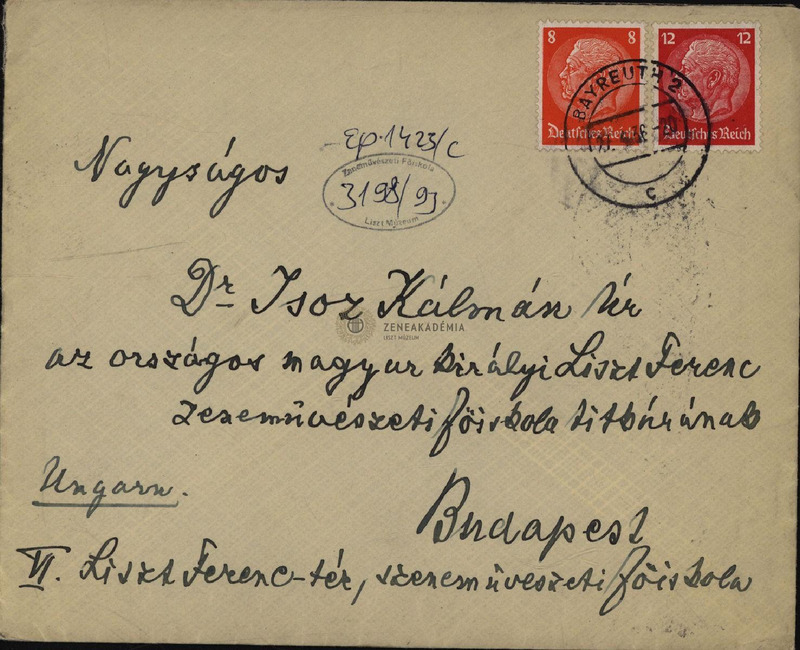 8 8
12 12
Deutsches Reich
Deutsches Reich
BAYREUTH 2
c
Ep. 1423/c
Zeneművészeti Főiskola
3198/93
Liszt Múzeum
Nagyságos
Dr Isoz Kálmán úr
ZENEAKADÉMIA
LISZT MÚZEUM
az országos magyar királyi Liszt Ferenc
zeneművészeti főiskola titkárának
Ungarn.
Budapest
VI. Liszt Ferenc-tér, zeneművészeti főiskola